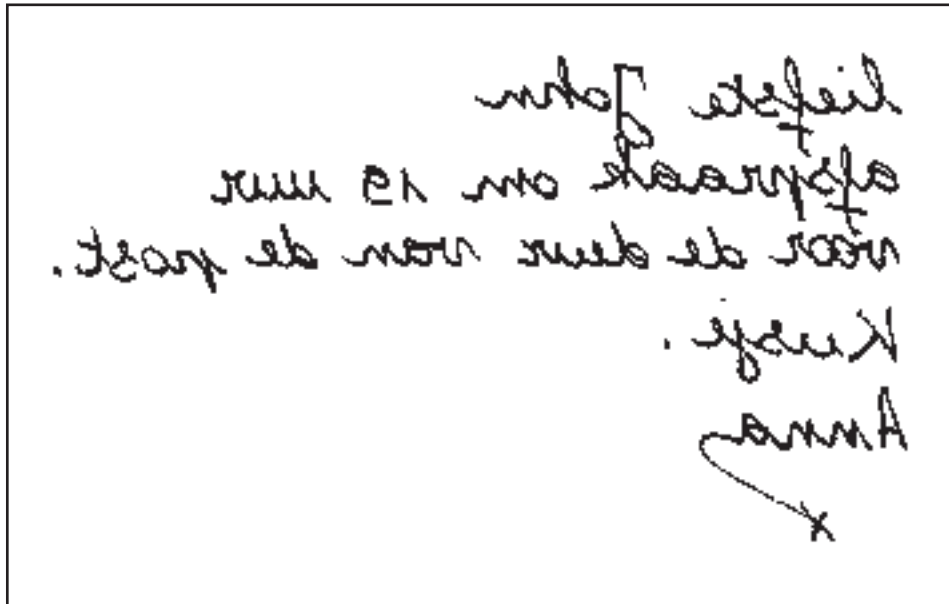 liefste John
afspraak om 19 uur
voor de deur van de post.
Kusje.
Anna
x